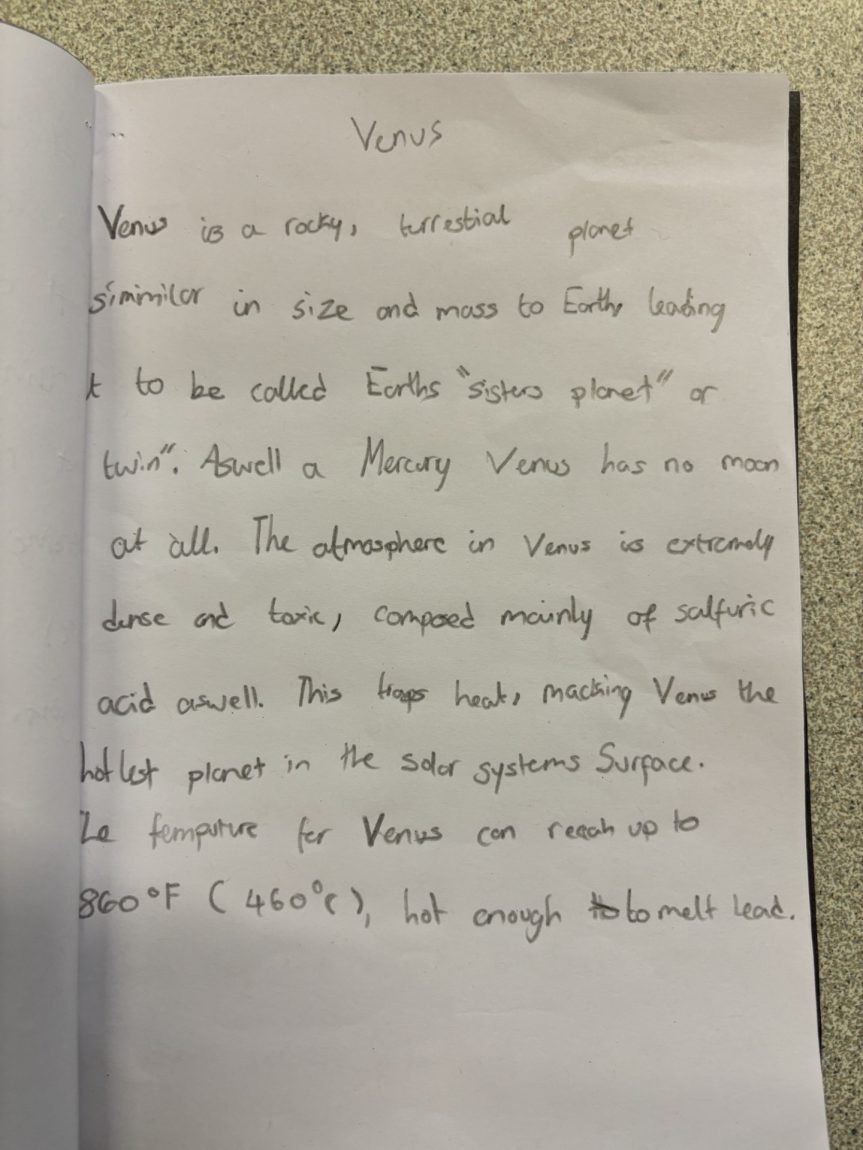 Venus
Venus is a rocky, terrestial planet
simmilar in size and mass to Earth, leading
t to be called Earths "sisters planet" or
twin". Aswell a Mercury Venus has no moon
at all. The atmosphere in Venus is extremely
dense and toxic, composed mainly of salfuric
acid aswell. This traps heat, macking Venus the
hottest planet in the solar systems Surface.
Le femputure for Venus can reach up to
860°F (460°c), hot enough to melt lead.